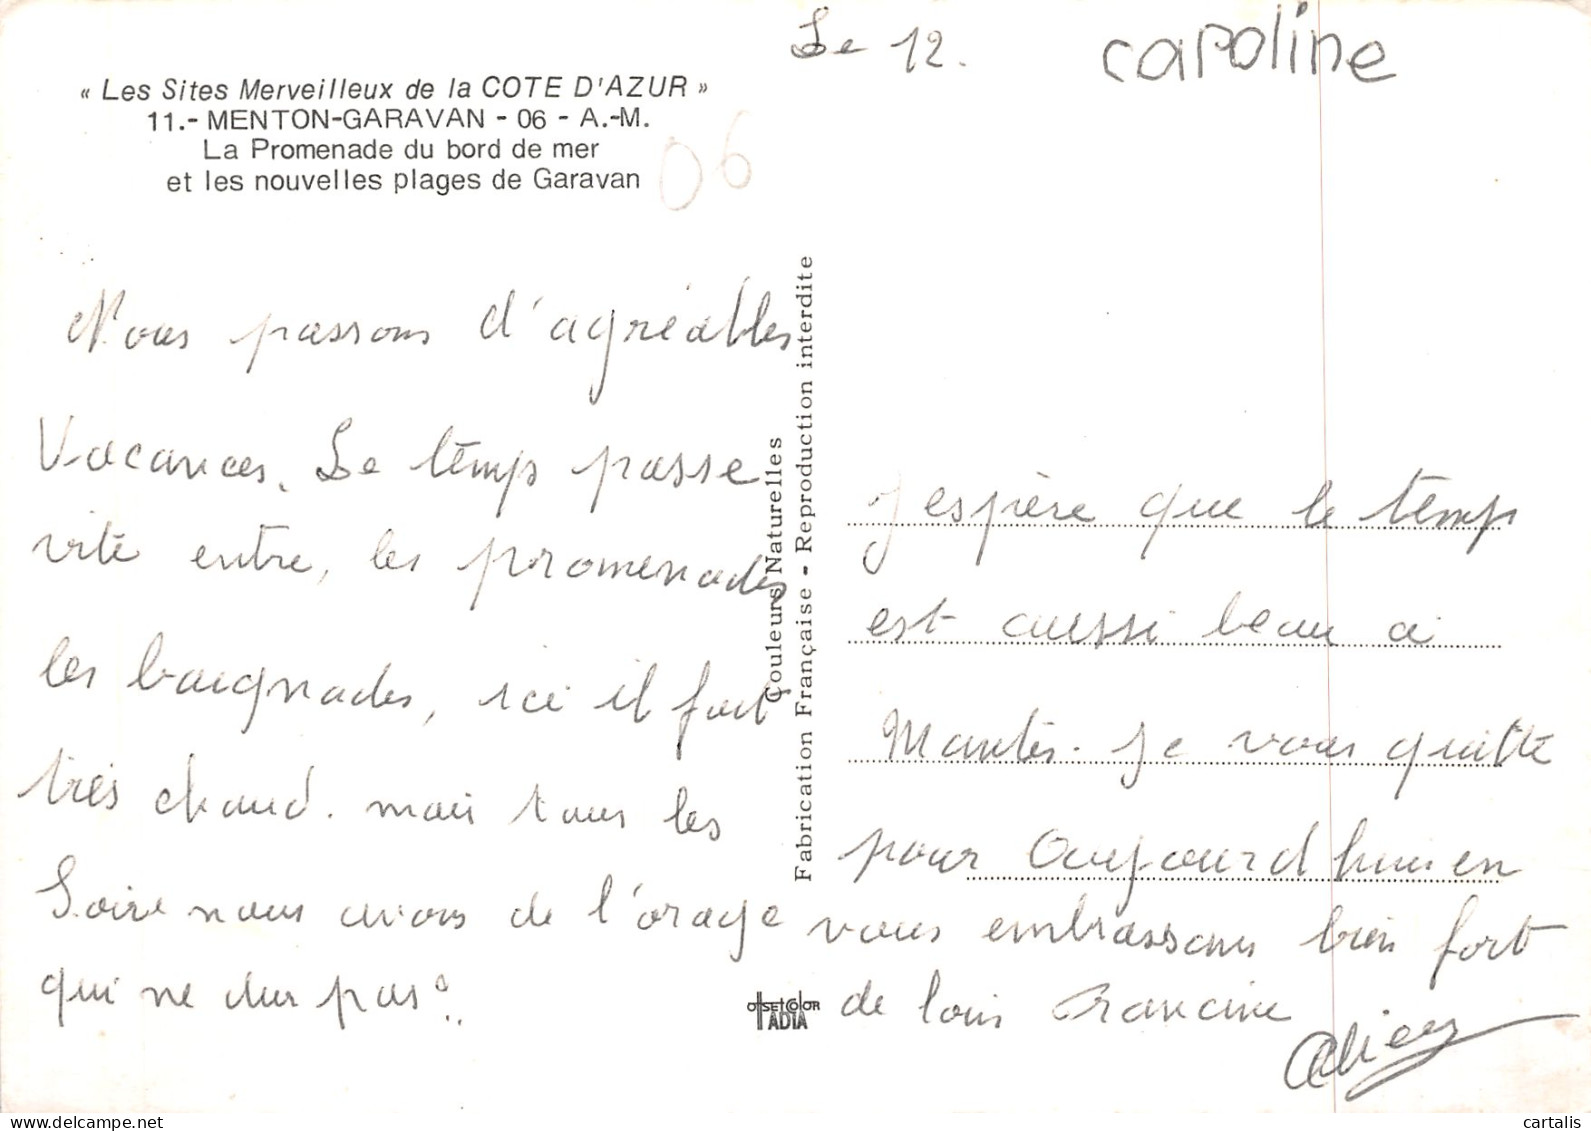 Le 12.
caroline
« Les Sites Merveilleux de la COTE D'AZUR »
11.- MENTON-GARAVAN - 06 - A.-M.
La Promenade du bord de mer
et les nouvelles plages de Garavan
06
Nous passons d'agréables
Vacances. Le temps passe
vite entre, les promenades
les baignades, ici il fait
très chaud. mais tous les
Soire nous avons de l'orage
qui ne dur pas.
Couleurs Naturelles
Fabrication Française - Reproduction interdite
OFFSET COLOR
ADIA
J espère que le temps
est aussi beau a
Mantes. Je vous quitte
pour Aujourd huis en
vous embrassons bien fort
de loin Francine
delcampe.net
cartalis